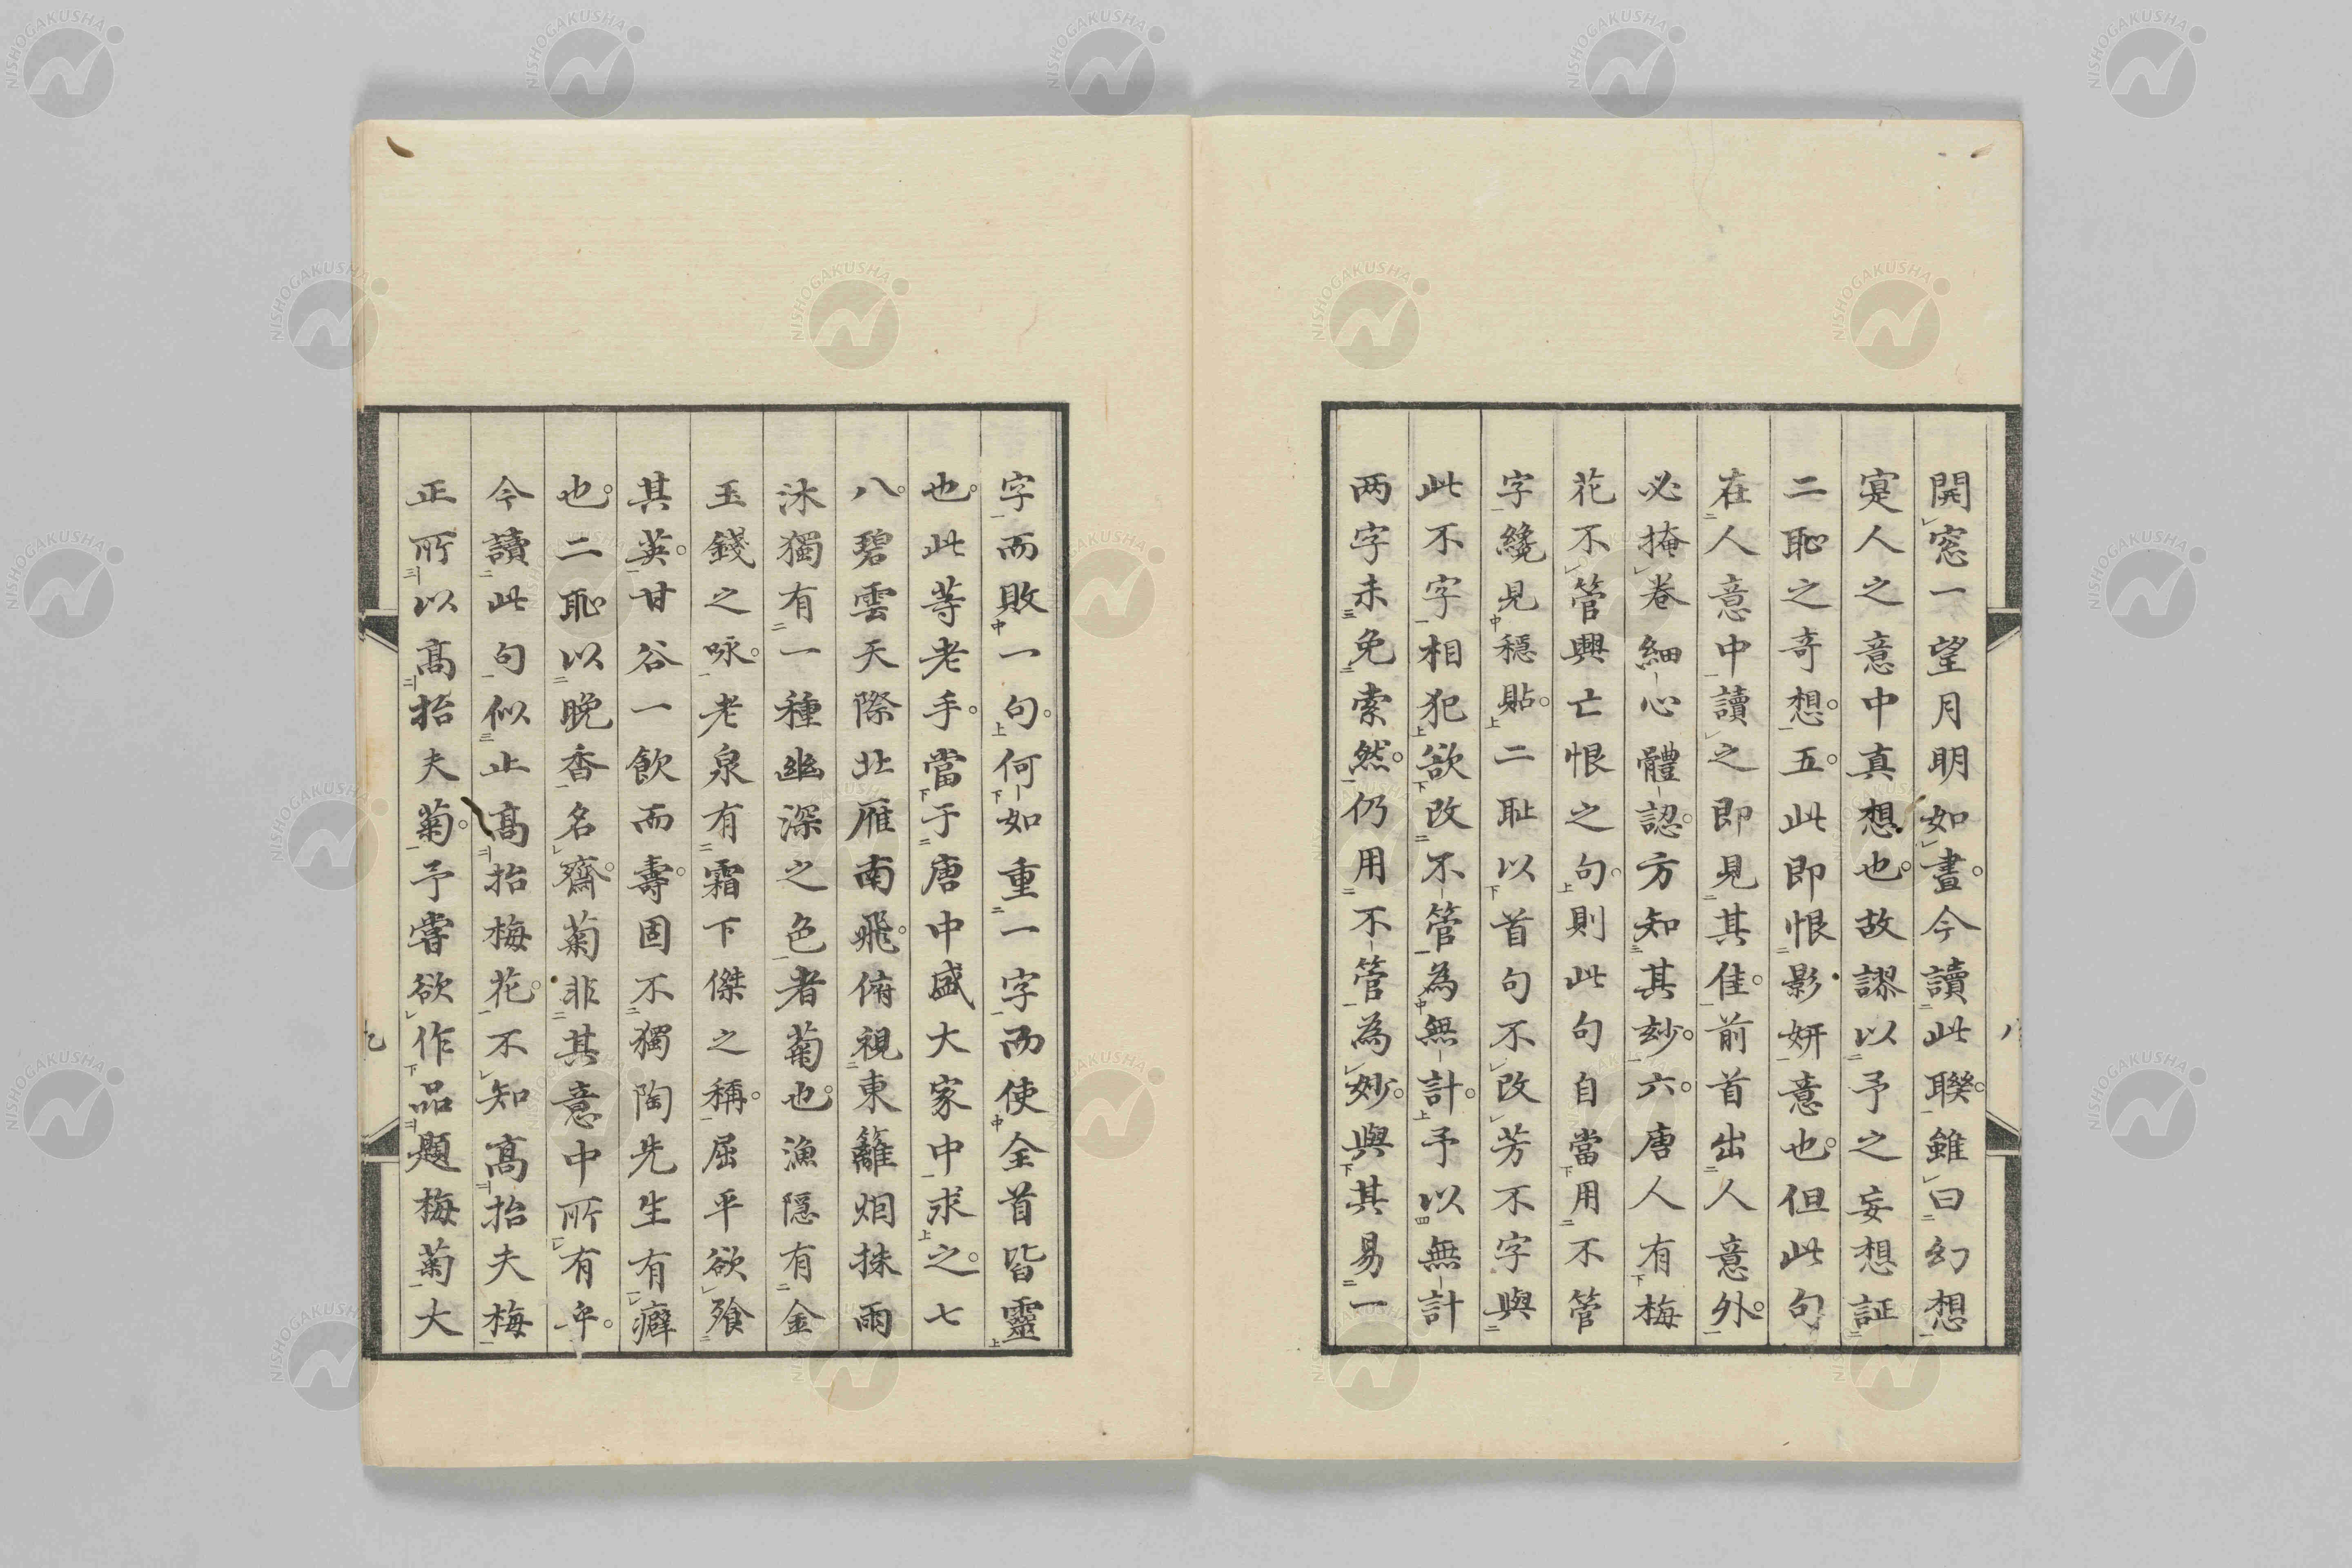 開窓一望月明如晝。今讀此聯。雖曰幻想
寔人之意中真想也。故謬以予之妄想証
二恥之奇想。五。此即恨影妍意也。但此句
在人意中讀之即見其佳。前首出人意外。
必掩卷細心體認。方知其玅。六。唐人有梅
花不管興亡恨之句。則此句自當用不管
字纔見穩貼。二耻以首句不改芳不字與
此不字相犯欲改不管為無計。予以無計
两字未免索然。仍用不管為妙。與其易一
字而敗一句。何如重一字而使全首皆靈
也。此等老手。當于唐中盛大家中求之。七
八。碧雲天際北雁南飛。俯視東籬烟抹雨
沐獨有一種幽深之色者菊也。漁隱有金
玉錢之咏。老泉有霜下傑之稱。屈平欲飱
其英。甘谷一飲而壽。固不獨陶先生有癖
也。二恥以晚香名齋。菊非其意中所有乎。
今讀此句似止高抬梅花。不知高抬夫梅
正所以高抬夫菊。予嘗欲作品題梅菊大
八
九
NISHOGAKUSHA